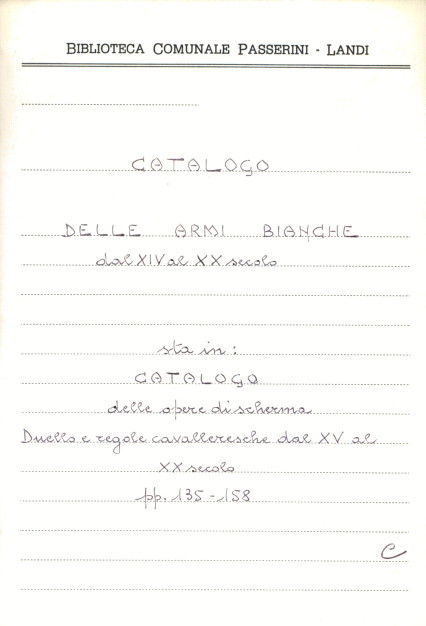 BIBLIOTECA COMUNALE PASSERINI - LANDI
CATALOGO
DELLE ARMI BIANCHE
dal XIV al XX secolo
sta in:
CATALOGO
delle opere di scherma
Duello e regole cavalleresche dal XV al
XX secolo
pp. 135-158
C